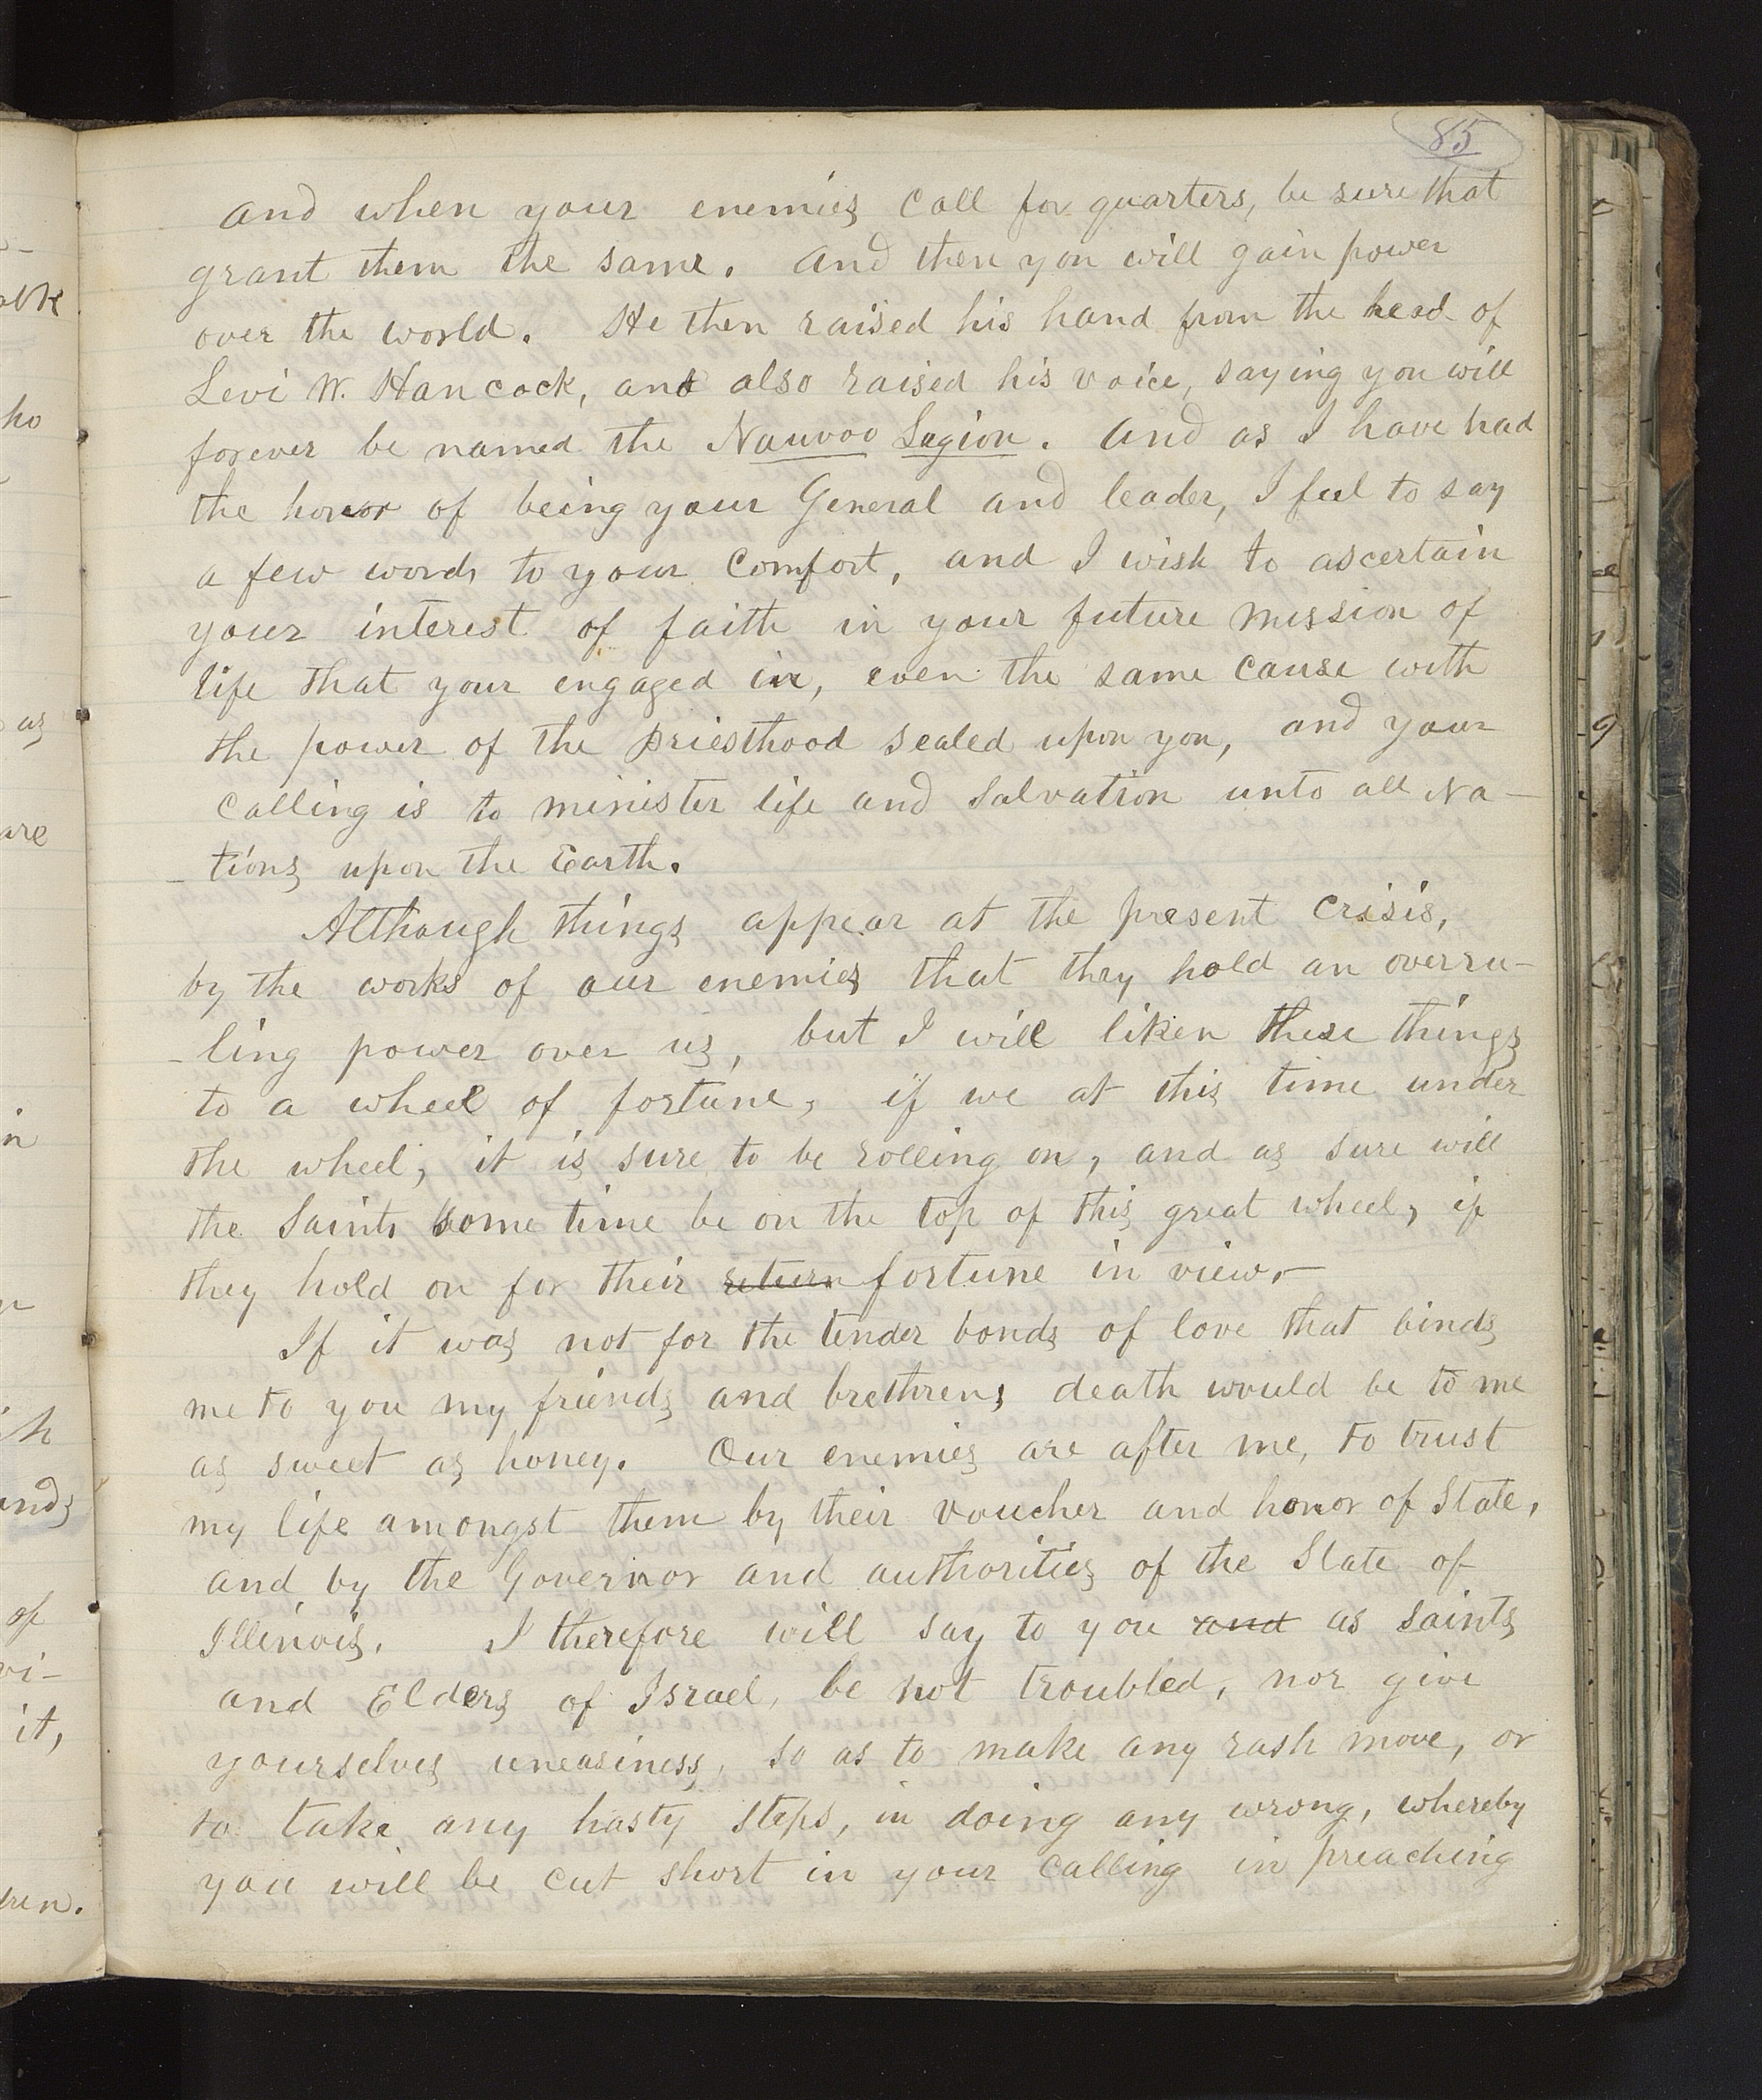 85
and when your enemies call for quarters, be sure that
grant them the same. And then you will gain power
over the world. He then raised his hand from the head of
Levi W. Hancock, and also raised his voice, saying you will
forever be named the Nauvoo Legion. And as I have had
the honor of being your General and leader, I feel to say
a few words to your comfort, and I wish to ascertain
your interest of faith in your future mission of
life that your engaged in, even the same cause with
the power of the priesthood sealed upon you, and your
calling is to minister life and salvation unto all Na-
-tions upon the Earth.
Although things appear at the present crisis,
by the works of our enemies that they hold an overru-
-ling power over us, but I will liken these things
to a wheel of fortune, if we at this time under
the wheel, it is sure to be rolling on, and as sure will
the Saints some time be on the top of this great wheel, if
they hold on for their return fortune in view.-
If it was not for the tender bonds of love that binds
me to you my friends and brethrens death would be to me
as sweet as honey. Our enemies are after me, to trust
my life amongst them by their voucher and honor of State,
and by the Governor and authorities of the State of
Illinois. I therefore will say to you and as saints
and Elders of Israel, be not troubled, nor give
yourselves uneasiness, so as to make any rash move, or
to take any hasty steps, in doing any wrong, whereby
you will be cut short in your calling in preaching